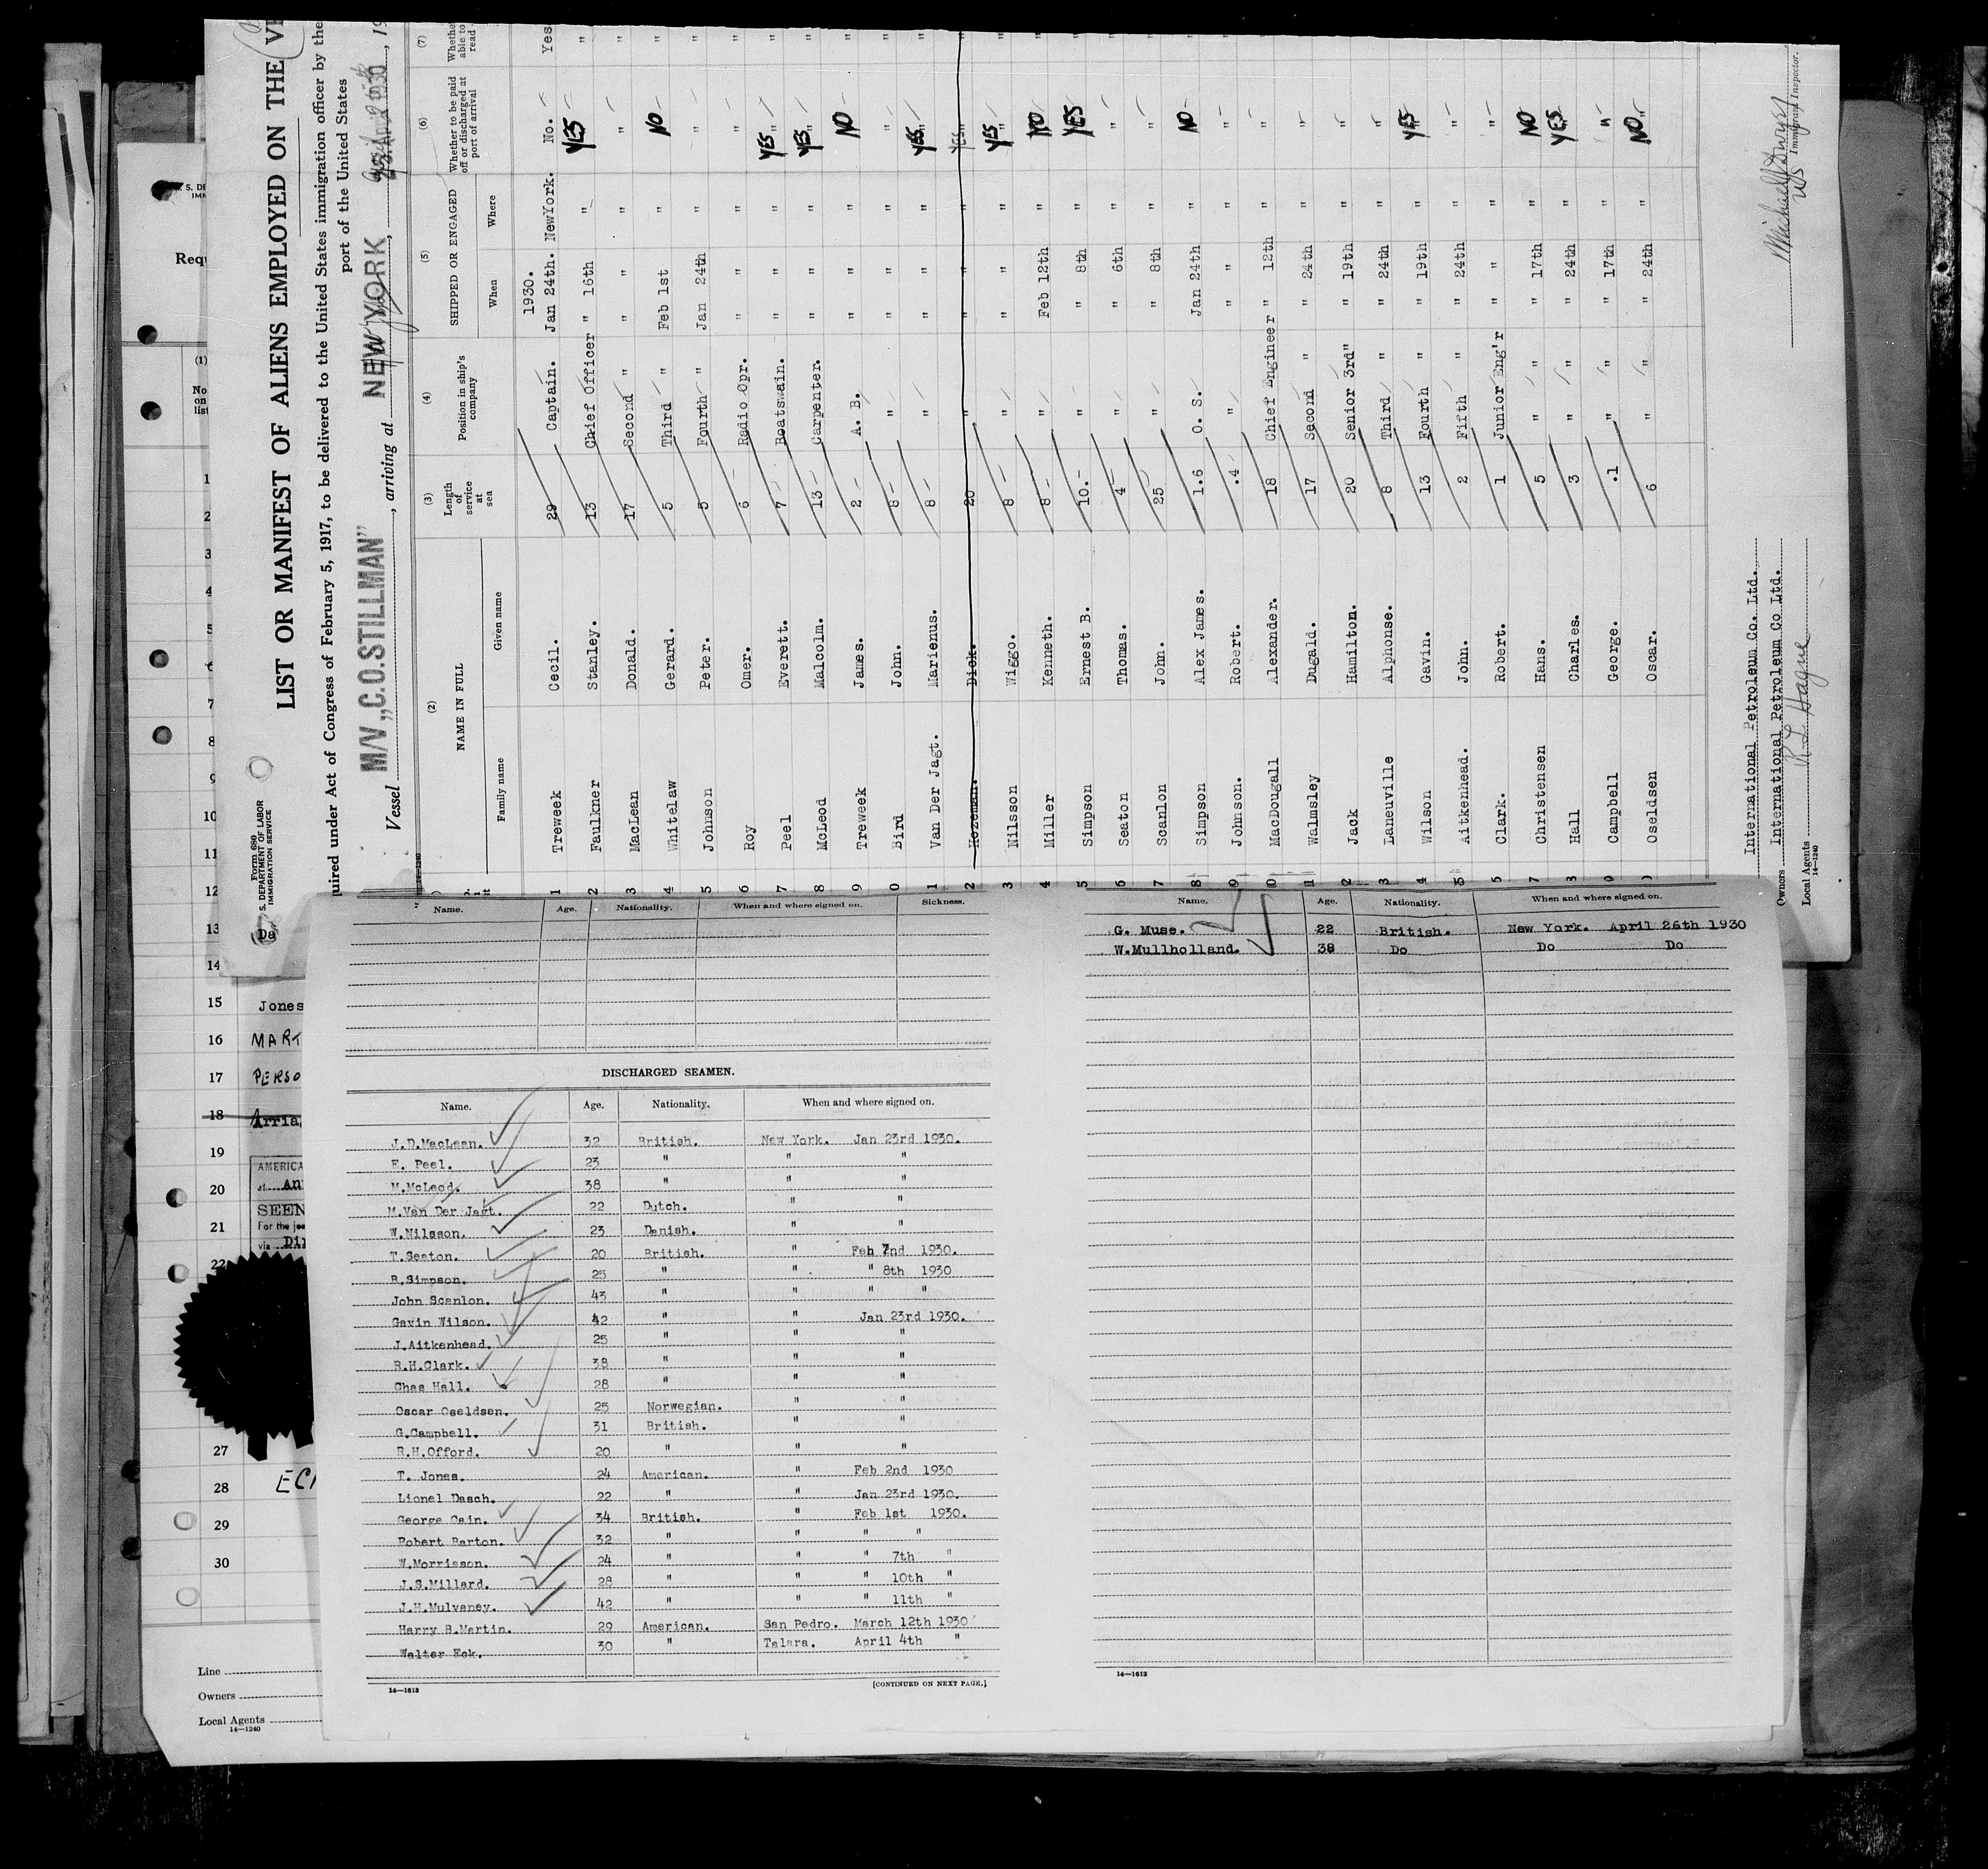 Form 689
U. S. DEPARTMENT OF LABOR
IMMIGRATION SERVICE
LIST OR MANIFEST OF ALIENS EMPLOYED ON THE
quired under Act of Congress of February 5, 1917, to be delivered to the United States immigration officer by the
port of the United States
Vessel M/V „C.O.STILLMAN”, arriving at NEW YORK, 1930, 19
(2) (3) (4) (5) (6) (7)
NAME IN FULL Length of service at sea Position in ship's company SHIPPED OR ENGAGED Whether to be paid off or discharged at port of arrival Whether able to read
Family name Given name When Where
1930.
1 Treweek Cecil. 29 Captain. Jan 24th. NewYork. No. Yes
2 Faulkner Stanley. 13 Chief Officer " 16th " YES "
3 MacLean Donald. 17 Second " " " " "
4 Whitelaw Gerard. 5 Third " Feb 1st " NO "
5 Johnson Peter. 5 Fourth " Jan 24th " " "
6 Roy Omer. 6 Radio Opr. " " " "
7 Peel Everett. 7 Boatswain. " " YES " "
8 McLeod Malcolm. 13 Carpenter. " " YES " "
9 Treweek James. 2 A. B. " " NO "
0 Bird John. 8 " " " " "
1 Van Der Jagt. Marienus. 8 " " " YES " "
2 Kozeman. Dick. 20 " " " YES " "
3 Nilsson Wiggo. 8 " " " YES "
4 Miller Kenneth. 8 " Feb 12th " NO "
5 Simpson Ernest B. 10. " " 8th " YES "
6 Seaton Thomas. 4 " " 6th " " "
7 Scanlon John. 25 " " 8th " " "
8 Simpson Alex James. 1.6 O. S. Jan 24th " NO "
9 Johnson. Robert. .4 " " " " "
0 MacDougall Alexander. 18 Chief Engineer " 12th " " "
1 Walmsley Dugald. 17 Second " " 24th " " "
2 Jack Hamilton. 20 Senior 3rd" " 19th " " "
3 Laneuville Alphonse. 8 Third " " 24th " " "
4 Wilson Gavin. 13 Fourth " " 19th " YES "
5 Aitkenhead. John. 2 Fifth " " 24th " " "
6 Clark. Robert. 1 Junior Eng'r " " " " "
7 Christensen Hans. 5 " " " 17th " NO "
8 Hall Charles. 3 " " " 24th " YES "
9 Campbell George. .1 " " " 17th " " "
Oseldsen Oscar. 6 " " " 24th " NO "
International Petroleum Co. Ltd.
Owners International Petroleum Co Ltd.
Local Agents R L Hague
14—1240
Immigrant Inspector.
Requ
(1)
No.
on
list
1
2
3
4
5
6
7
8
9
10
11
12
13
14
15 Jones
16 MART
17 PERSO
18 Arria
19
20
21
22
27
28
29
30
AMERICA
SEEN
For the jou
via Dir
Line
Owners
Local Agents
14—1240
Name. Age. Nationality. When and where signed on. Sickness.
DISCHARGED SEAMEN.
Name. Age. Nationality. When and where signed on.
J.D.MacLean. 32 British. New York. Jan 23rd 1930.
E. Peel. 23 " " "
M.McLeod. 38 " " "
M.Van Der Jagt. 22 Dutch. " "
W.Nilsson. 23 Danish. " "
T.Seaton. 20 British. " Feb 2nd 1930.
B.Simpson. 25 " " " 8th 1930
John Scanlon. 43 " " " "
Gavin Wilson. 42 " " Jan 23rd 1930.
J.Aitkenhead. 25 " " "
R.H.Clark. 38 " " "
Chas Hall. 28 " " "
Oscar Oseldsen. 25 Norwegian. " "
G.Campbell. 31 British. " "
R.H.Offord. 20 " " "
T. Jones. 24 American. " Feb 2nd 1930
Lionel Dasch. 22 " " Jan 23rd 1930.
George Cain. 34 British. " Feb 1st 1930.
Robert Barton. 32 " " " "
W.Morrisson. 24 " " " 7th "
J.S.Millard. 28 " " " 10th "
J.H.Mulvaney. 42 " " " 11th "
Harry B.Martin. 29 American. San Pedro. March 12th 1930
Walter Eck. 30 " Talara. April 4th "
14—1613
[CONTINUED ON NEXT PAGE.]
Name. Age. Nationality. When and where signed on.
G. Muse. 22 British. New York. April 26th 1930
W.Mullholland. 38 Do Do Do
14—1613